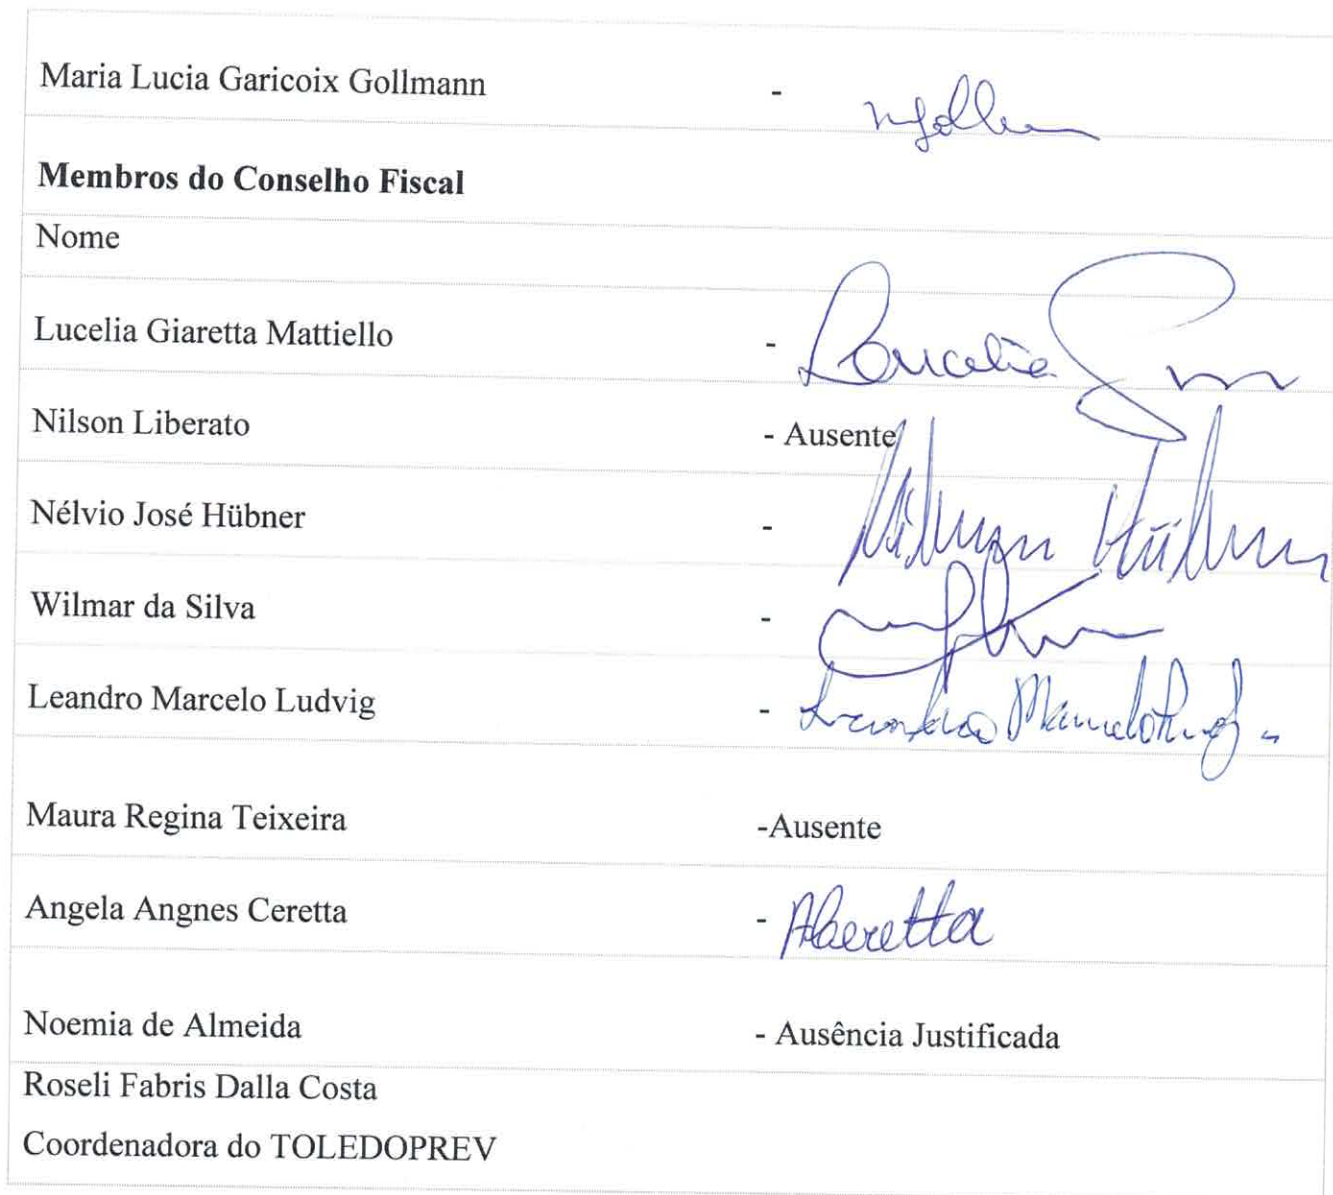 Maria Lucia Garicoix Gollmann -
Membros do Conselho Fiscal
Nome
Lucelia Giaretta Mattiello - Loucelia
Nilson Liberato - Ausente
Nélvio José Hübner - Hübner
Wilmar da Silva -
Leandro Marcelo Ludvig - Leandro Marcelo
Maura Regina Teixeira -Ausente
Angela Angnes Ceretta - ACeretta
Noemia de Almeida - Ausência Justificada
Roseli Fabris Dalla Costa
Coordenadora do TOLEDOPREV